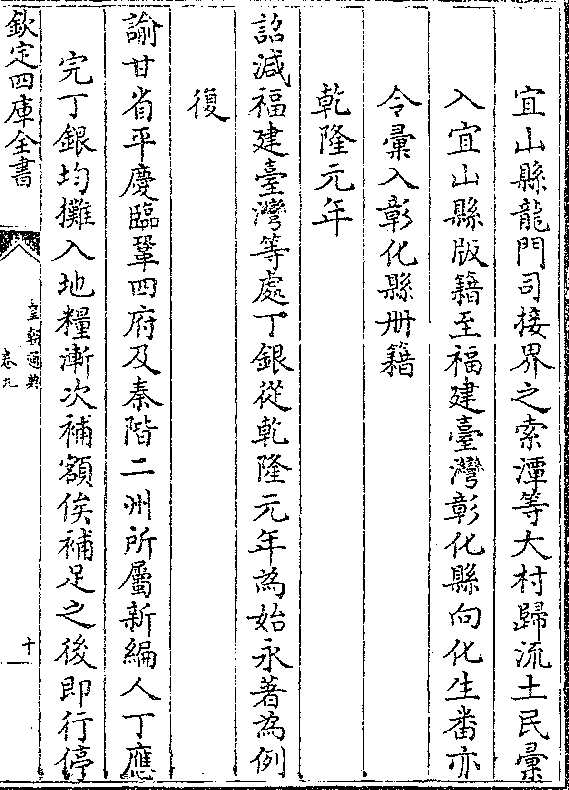 宜山縣龍門司接界之索潭等大村歸流土民彚
入宜山縣版籍至福建臺灣彰化縣向化生番亦
令彙入彰化縣册籍
乾隆元年
詔減福建臺灣等處丁銀從乾隆元年為始永著為例
復
諭甘省平慶臨鞏四府及秦階二州所屬新編人丁應
完丁銀均攤入地糧漸次補額俟補足之後即行停
欽定四庫全書
皇朝通典
卷九
十一